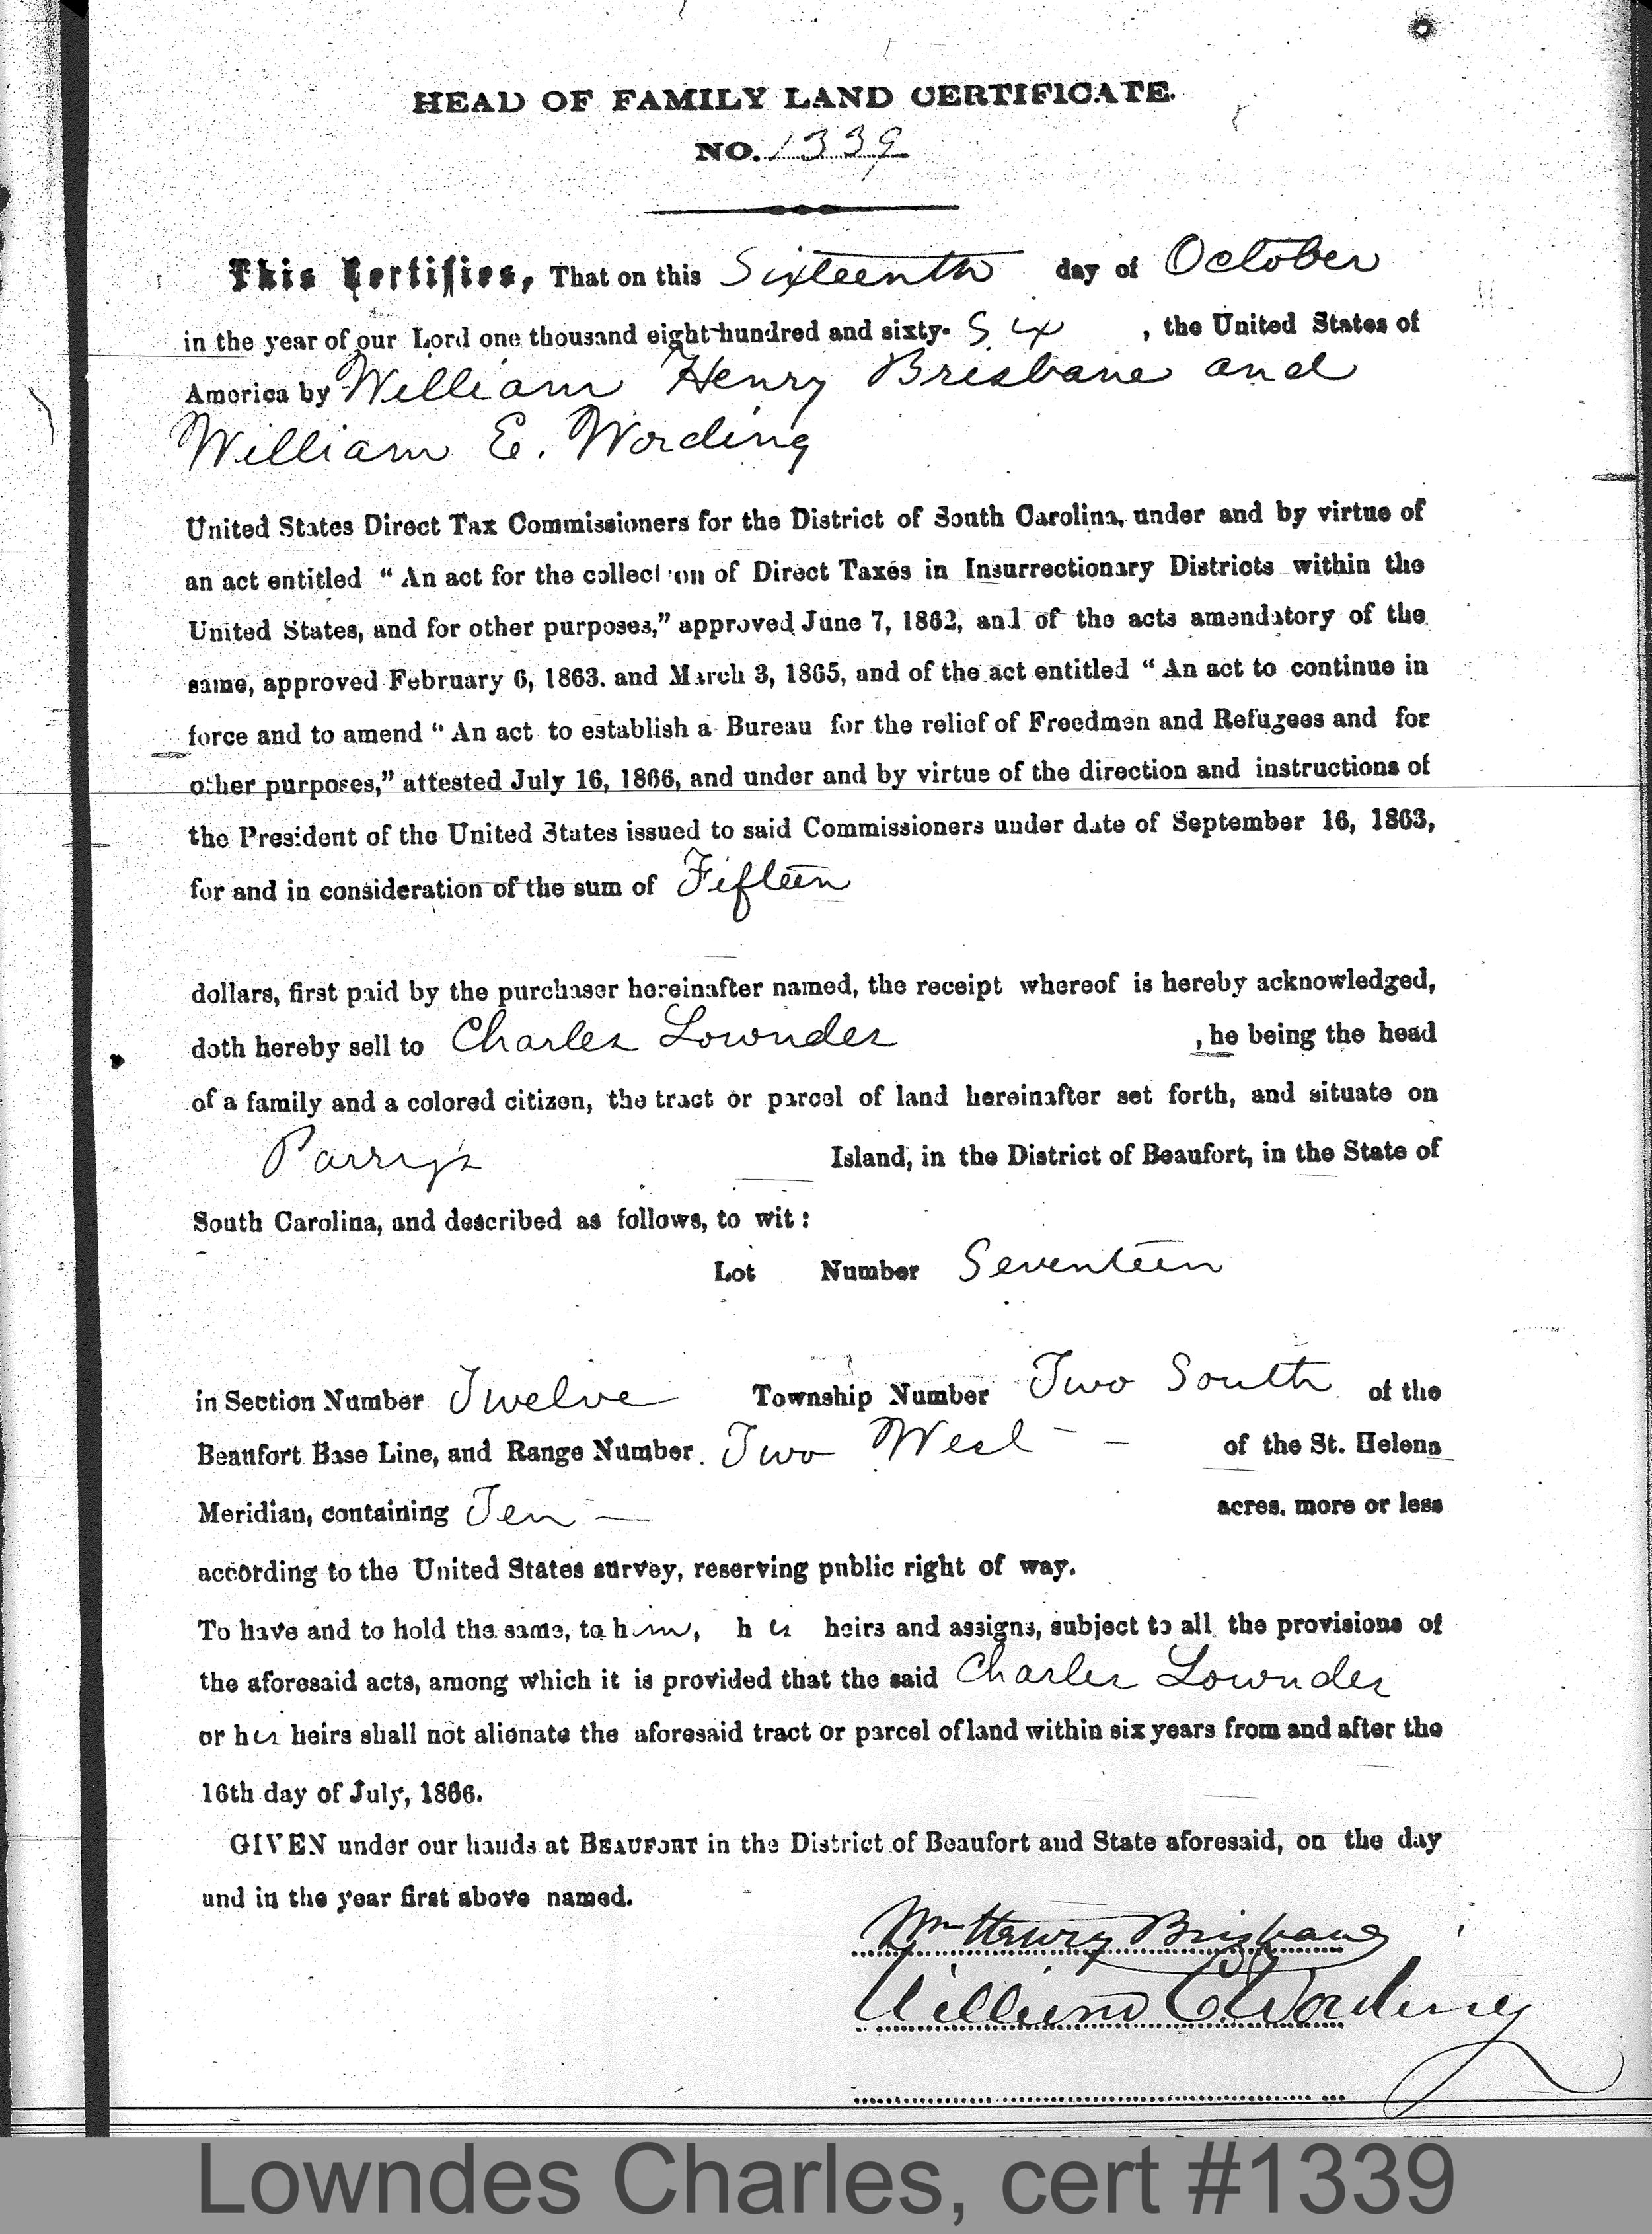 HEAD OF FAMILY LAND CERTIFICATE.
NO. 1339
This Certifies, That on this Sixteenth day of October
in the year of our Lord one thousand eight hundred and sixty- Six , the United States of
America by William Henry Brisbane and
William E. Wording
United States Direct Tax Commissioners for the District of South Carolina, under and by virtue of
an act entitled “ An act for the collection of Direct Taxes in Insurrectionary Districts within the
United States, and for other purposes,” approved June 7, 1862, and of the acts amendatory of the
same, approved February 6, 1863. and March 3, 1865, and of the act entitled “ An act to continue in
force and to amend “ An act to establish a Bureau for the relief of Freedmen and Refugees and for
other purposes,” attested July 16, 1866, and under and by virtue of the direction and instructions of
the President of the United States issued to said Commissioners under date of September 16, 1863,
for and in consideration of the sum of Fifteen
dollars, first paid by the purchaser hereinafter named, the receipt whereof is hereby acknowledged,
doth hereby sell to Charles Lowndes , he being the head
of a family and a colored citizen, the tract or parcel of land hereinafter set forth, and situate on
Parry's Island, in the District of Beaufort, in the State of
South Carolina, and described as follows, to wit :
Lot Number Seventeen
in Section Number Twelve Township Number Two South of the
Beaufort Base Line, and Range Number Two West - - of the St. Helena
Meridian, containing Ten - — acres. more or less
according to the United States survey, reserving public right of way.
To have and to hold the same, to him, his heirs and assigns, subject to all the provisions of
the aforesaid acts, among which it is provided that the said Charles Lowndes
or his heirs shall not alienate the aforesaid tract or parcel of land within six years from and after the
16th day of July, 1866.
GIVEN under our hands at BEAUFORT in the District of Beaufort and State aforesaid, on the day
and in the year first above named.
Wm Henry Brisbane
William E. Wording
Lowndes Charles, cert #1339